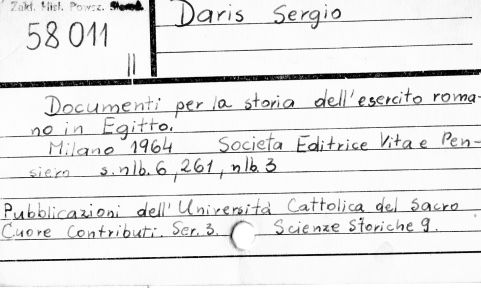 Zakł. Hist. Powsz. Staroż.
58011
II
Daris Sergio
Documenti per la storia dell'esercito roma-
no in Egitto.
Milano 1964 Societa Editrice Vita e Pen-
siero s. nlb. 6, 261, nlb. 3
Pubblicazioni dell'Università Cattolica del Sacro
Cuore Contributi. Ser. 3. Scienze Storiche 9.